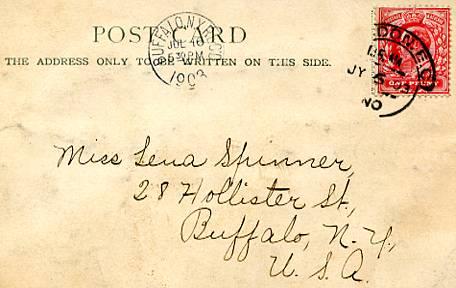 POST CARD
THE ADDRESS ONLY TO BE WRITTEN ON THIS SIDE.
BUFFALO, N.Y.
JUL 16
30PM
1903
LONDON. E.C.
JY 5 03
ONE PENNY
Miss Lena Spinner,
28 Hollister St,
Buffalo, N.Y.,
U.S.A.